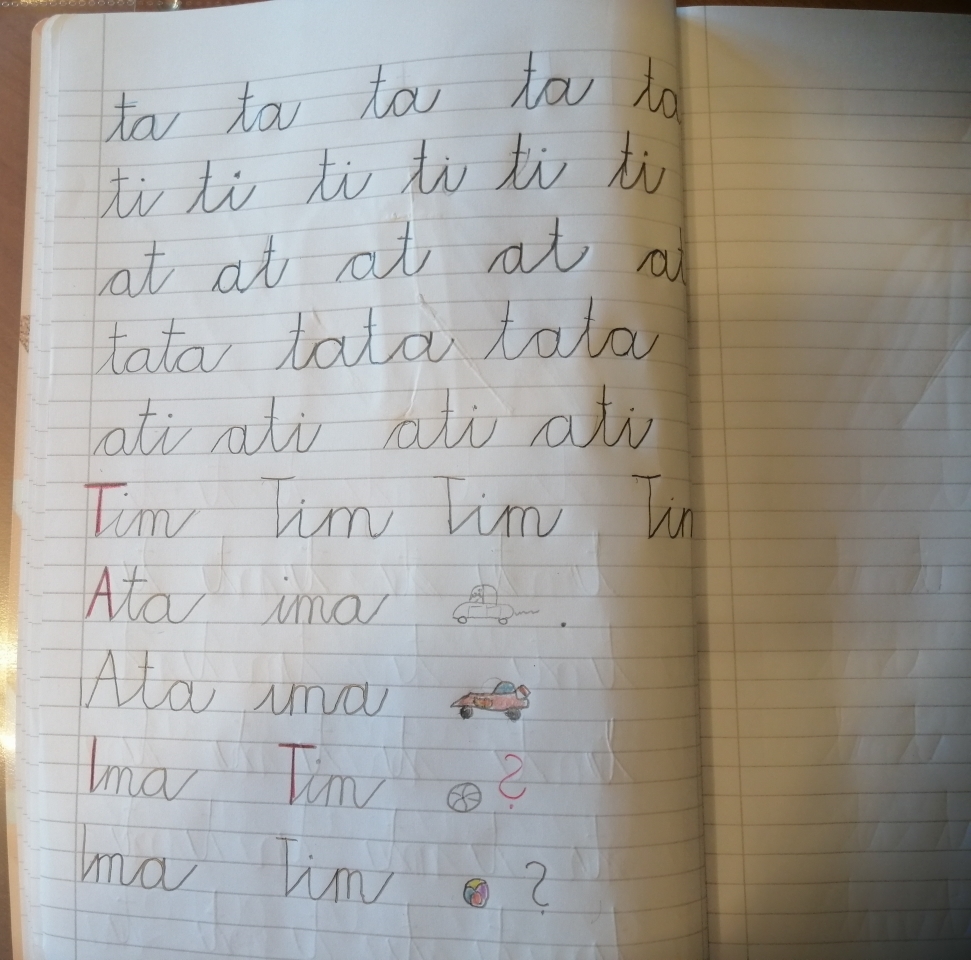 ta ta ta ta ta
ti ti ti ti ti ti
at at at at at
tata tata tata
ati ati ati ati
Tim Tim Tim Tim
Ata ima .
Ata ima
Ima Tim ?
Ima Tim ?